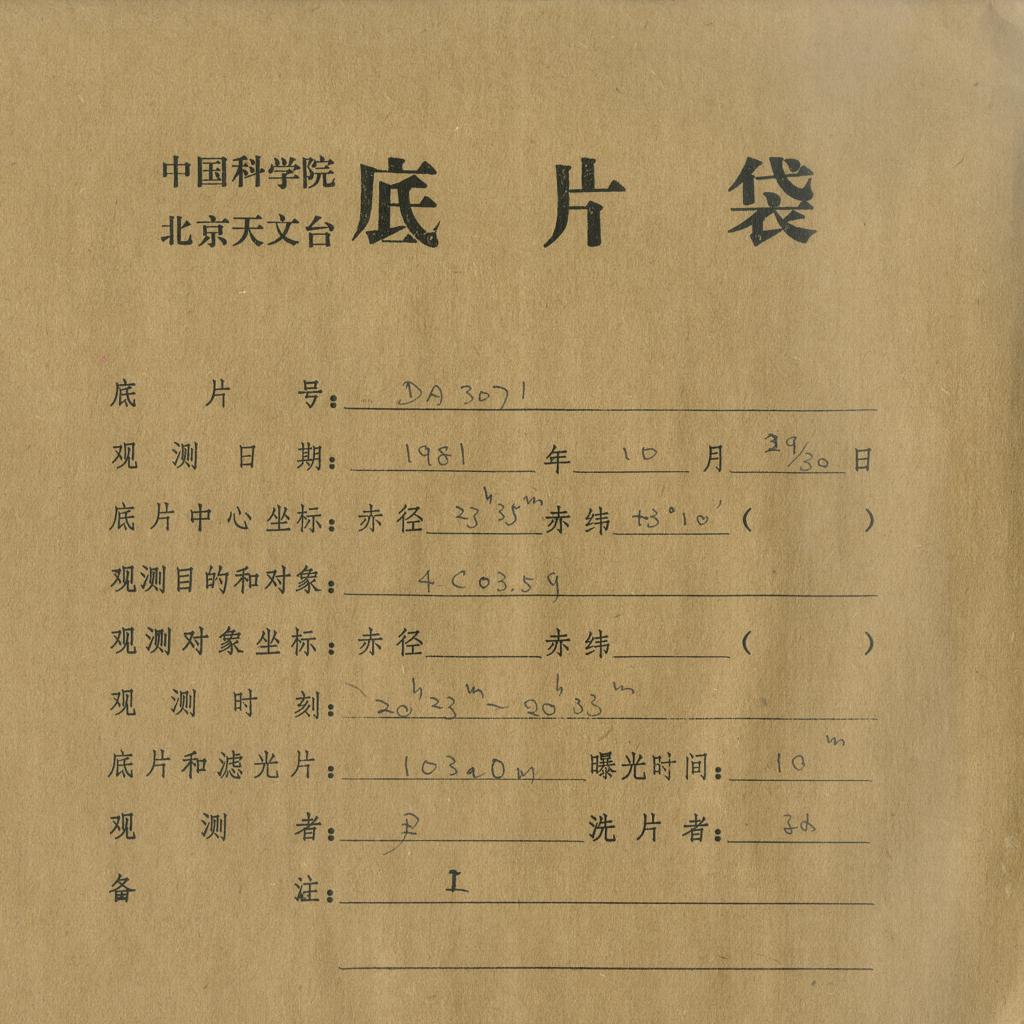 中国科学院
北京天文台
底片袋
底片号：DA 3071
观测日期：1981年10月29/30日
底片中心坐标：赤径23ʰ35ᵐ赤纬+3°10′（ ）
观测目的和对象：4C03.59
观测对象坐标：赤径 赤纬 （ ）
观测时刻：20ʰ23ᵐ~20ʰ33ᵐ
底片和滤光片：103aO 曝光时间：10ᵐ
观测者：尹 洗片者：孙
备注：I